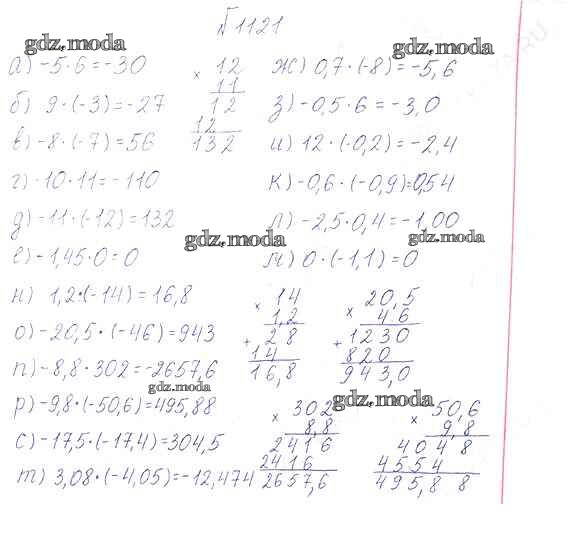 №1121
gdz.moda
gdz.moda
а) -5·6=-30
б) 9·(-3)=-27
в) -8·(-7)=56
г) -10·11=-110
д) -11·(-12)=132
е) -1,45·0=0
× 12
11
12
12
132
ж) 0,7·(-8)=-5,6
з) -0,5·6=-3,0
и) 12·(-0,2)=-2,4
к) -0,6·(-0,9)=0,54
л) -2,5·0,4=-1,00
м) 0·(-1,1)=0
gdz.moda
gdz.moda
н) 1,2·(-14)=16,8
о) -20,5·(-46)=943
п) -8,8·302=-2657,6
р) -9,8·(-50,6)=495,88
с) -17,5·(-17,4)=304,5
т) 3,08·(-4,05)=-12,474
× 14
1,2
+ 28
14
16,8
× 20,5
46
+ 1230
820
943,0
gdz.moda
gdz.moda
× 302
8,8
2416
2416
2657,6
× 50,6
9,8
4048
4554
495,88